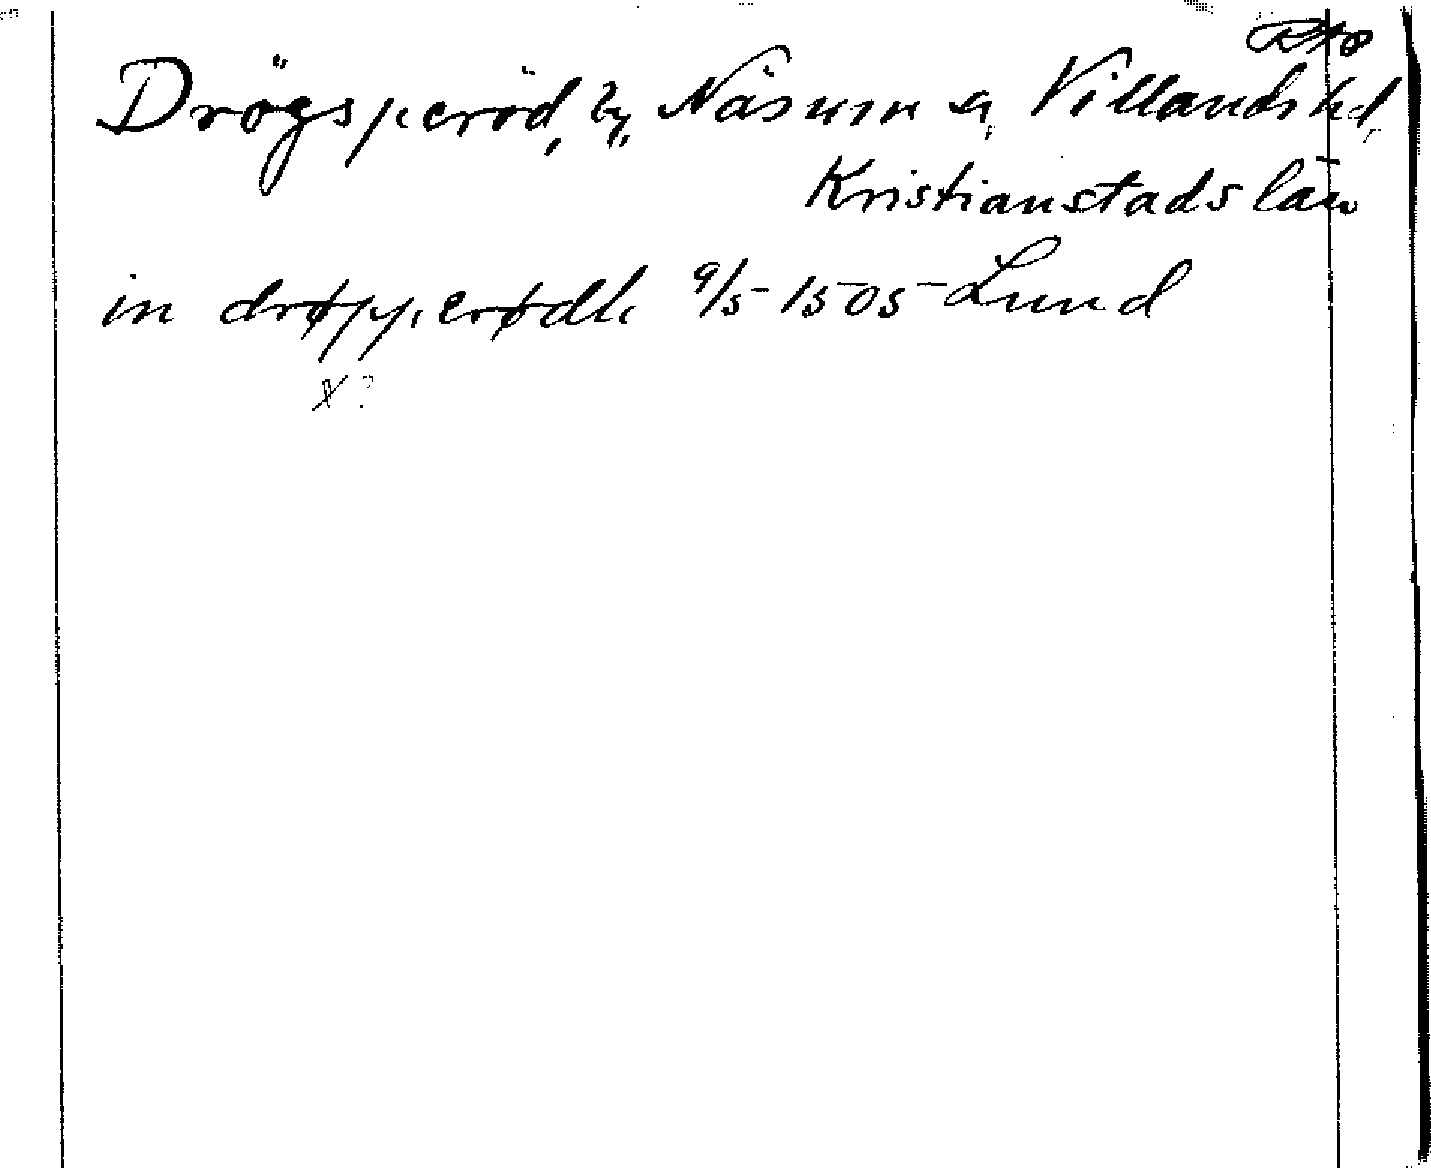 Drögsperöd, by, Näsum sn, Villands hd,
Kristianstads län
in drøpperødh 9/5-1505-Lund
x?